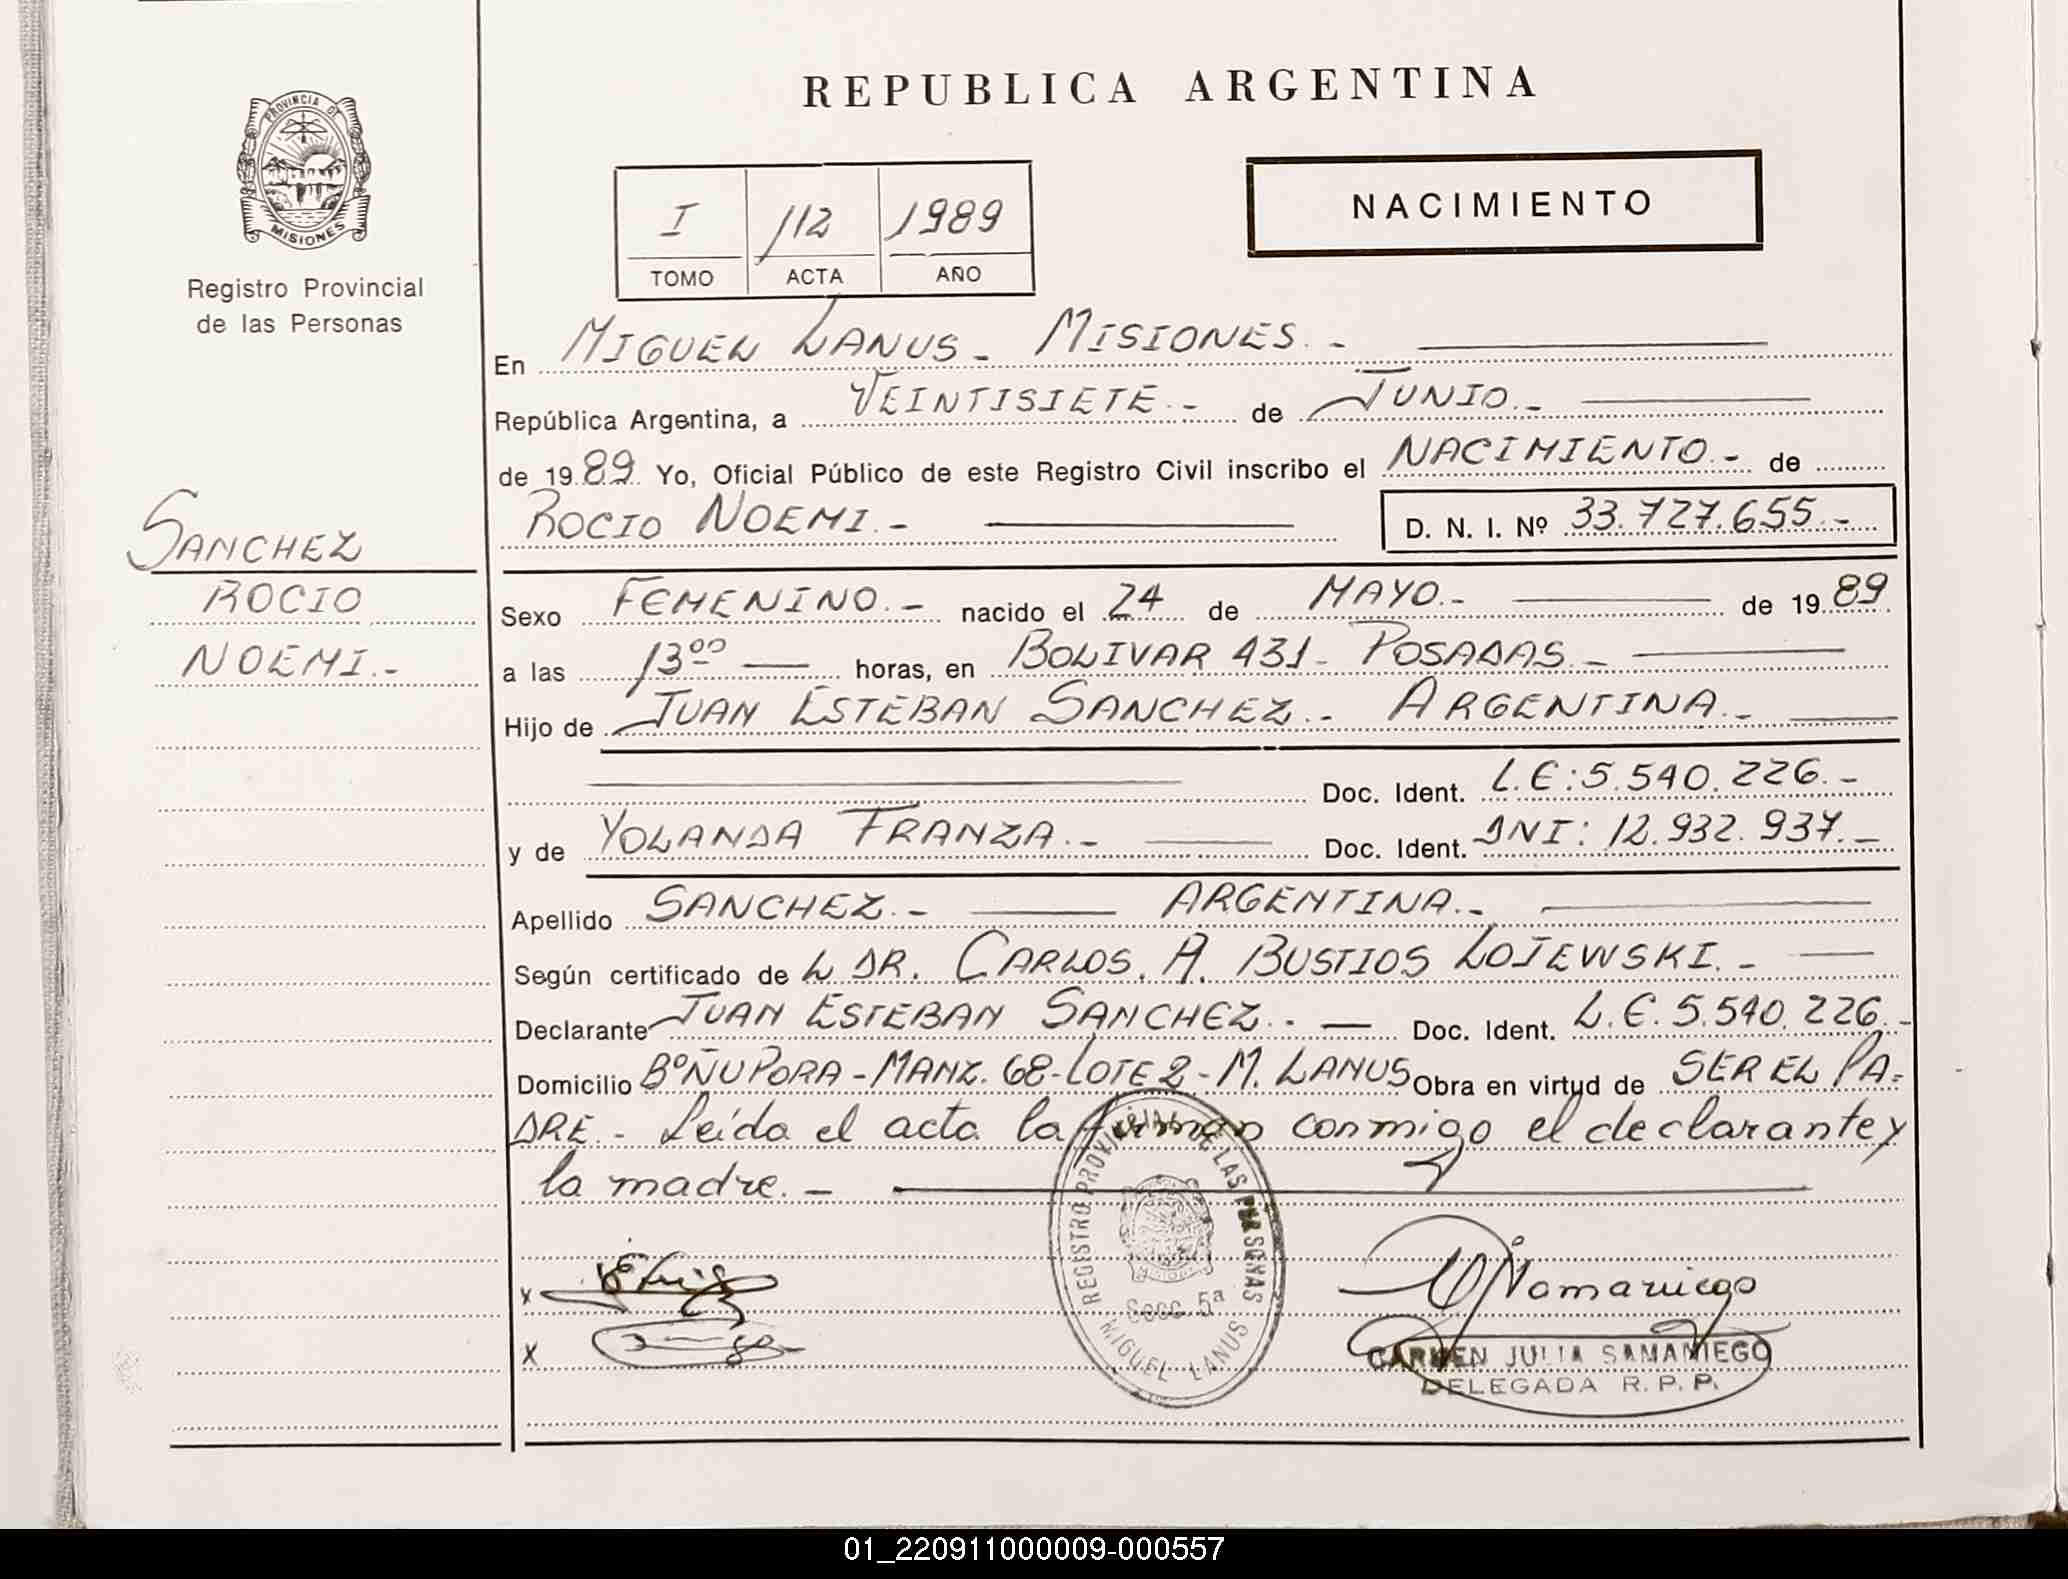 REPUBLICA ARGENTINA
PROVINCIA DE
MISIONES
Registro Provincial
de las Personas
I 112 1989
TOMO ACTA AÑO
NACIMIENTO
En MIGUEL LANUS - MISIONES.-
República Argentina, a VEINTISIETE.- de JUNIO.-
de 1989 Yo, Oficial Público de este Registro Civil inscribo el NACIMIENTO.- de
ROCIO NOEMI.- D. N. I. Nº 33.727.655.-
SANCHEZ
ROCIO
NOEMI.-
Sexo FEMENINO.- nacido el 24 de MAYO.- de 1989
a las 13⁰⁰ horas, en BOLIVAR 431- POSADAS.-
Hijo de JUAN ESTEBAN SANCHEZ.- ARGENTINA.-
Doc. Ident. L.E:5.540.226.-
y de YOLANDA FRANZA.- Doc. Ident. DNI: 12.932.937.-
Apellido SANCHEZ.- ARGENTINA.-
Según certificado de L DR. CARLOS. A. BUSTIOS LOJEWSKI.-
Declarante JUAN ESTEBAN SANCHEZ.- Doc. Ident. L.E.5.540.226.-
Domicilio BºÑU PORA-MANZ.68-LOTE 2-M. LANUS Obra en virtud de SER EL PA-
DRE.- Leída el acta la firman conmigo el declarante y
la madre.-
REGISTRO PROVINCIAL DE LAS PERSONAS
Secc. 5ª
MIGUEL LANUS
x
x
CARMEN JULIA SAMANIEGO
DELEGADA R.P.P.
01_220911000009-000557